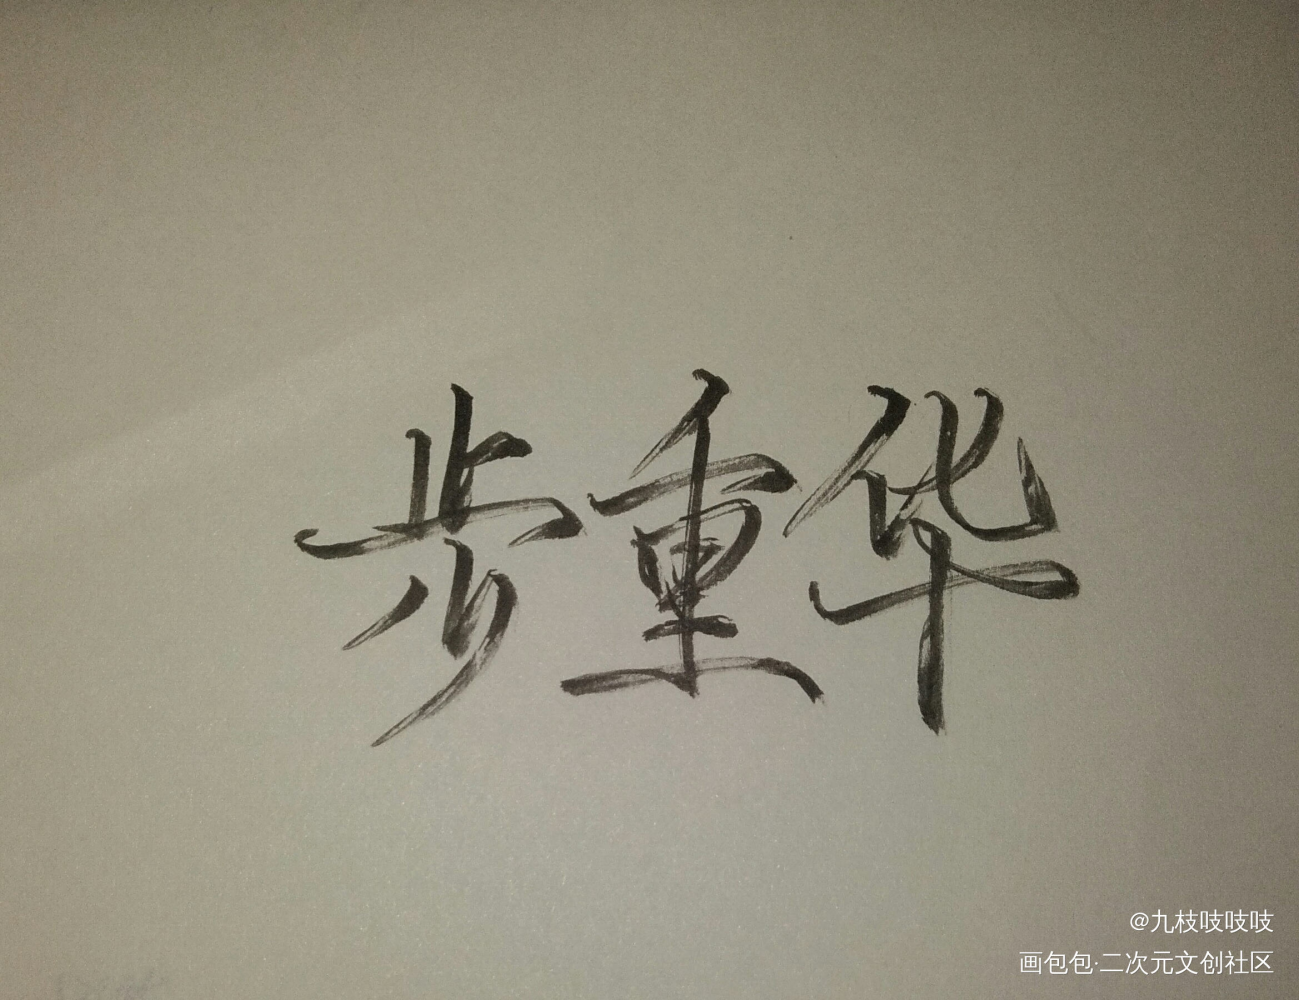 步重华
@九枝吱吱吱
画包包·二次元文创社区